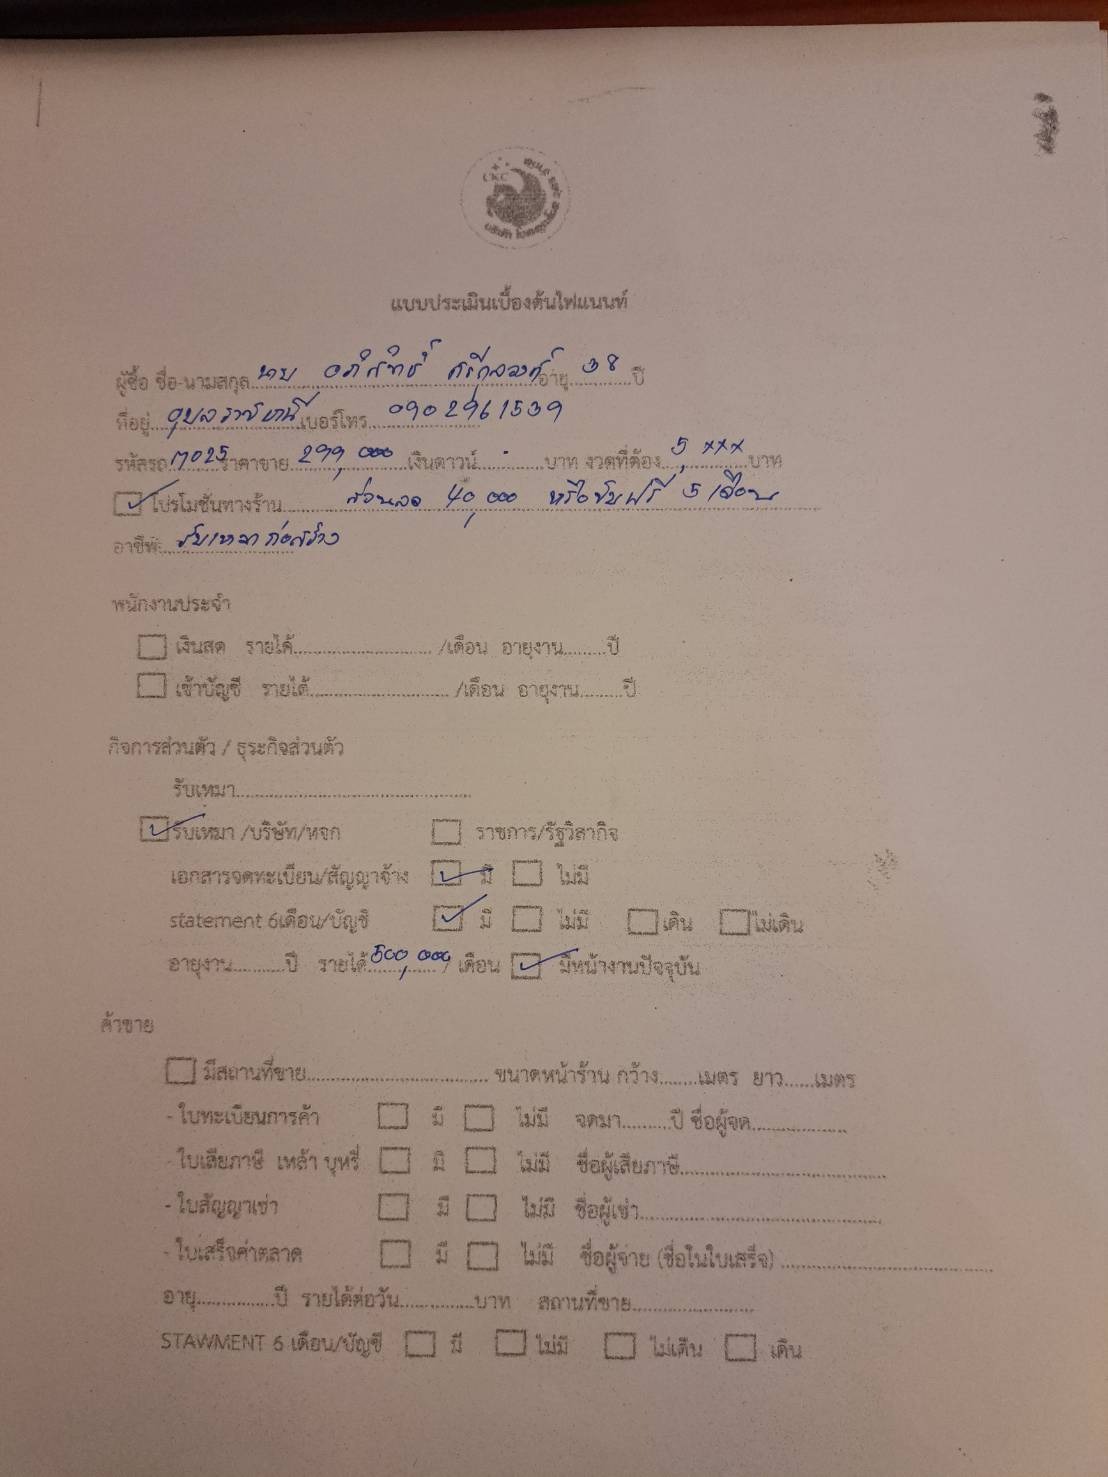 CKC
แบบประเมินเบื้องต้นไฟแนนท์
ผู้ซื้อ ชื่อ-นามสกุล นาย อภิสิทธิ์ อายุ 38 ปี
ที่อยู่ อุบลราชธานี เบอร์โทร 0902961539
รหัสรถ ถ7025 ราคาขาย 299,000 เงินดาวน์ - บาท งวดที่ต้อง 5,xxx บาท
โปรโมชั่นทางร้าน ส่วนลด 40,000 หรือขับฟรี 5 เดือน
อาชีพ รับเหมาก่อสร้าง
พนักงานประจำ
เงินสด รายได้ /เดือน อายุงาน ปี
เข้าบัญชี รายได้ /เดือน อายุงาน ปี
กิจการส่วนตัว / ธุระกิจส่วนตัว
รับเหมา
รับเหมา /บริษัท/หจก ราชการ/รัฐวิสากิจ
เอกสารจดทะเบียน/สัญญาจ้าง มี ไม่มี
statement 6เดือน/บัญชี มี ไม่มี เดิน ไม่เดิน
อายุงาน ปี รายได้ 500,000 / เดือน มีหน้างานปัจจุบัน
ค้าขาย
มีสถานที่ขาย ขนาดหน้าร้าน กว้าง เมตร ยาว เมตร
- ใบทะเบียนการค้า มี ไม่มี จดมา ปี ชื่อผู้จด
- ใบเสียภาษี เหล้า บุหรี่ มี ไม่มี ชื่อผู้เสียภาษี
- ใบสัญญาเช่า มี ไม่มี ชื่อผู้เช่า
- ใบเสร็จค่าตลาด มี ไม่มี ชื่อผู้จ่าย (ชื่อในใบเสร็จ)
อายุ ปี รายได้ต่อวัน บาท สถานที่ขาย
STAWMENT 6 เดือน/บัญชี มี ไม่มี ไม่เดิน เดิน